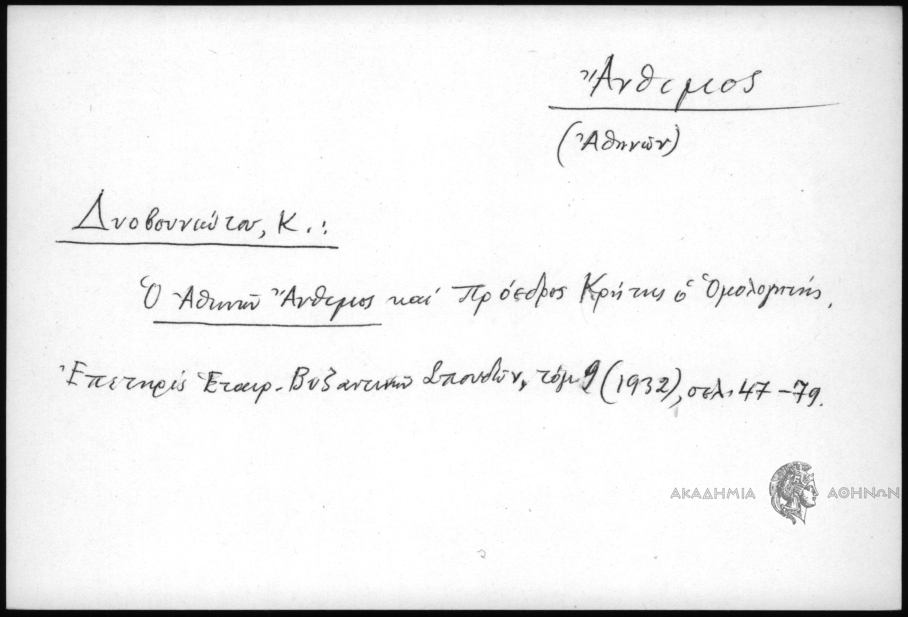 Ἄνθεμος
(Ἀθηνῶν)
Δυοβουνιώτου, Κ.:
Ὁ Ἀθηνῶν Ἄνθεμος καί πρόεδρος Κρήτης ὁ Ὁμολογητής.
Ἐπετηρίς Ἑταιρ. Βυζαντινῶν Σπουδῶν, τόμ 9 (1932), σελ. 47-79.
ΑΚΑΔΗΜΙΑ ΑΘΗΝΩΝ